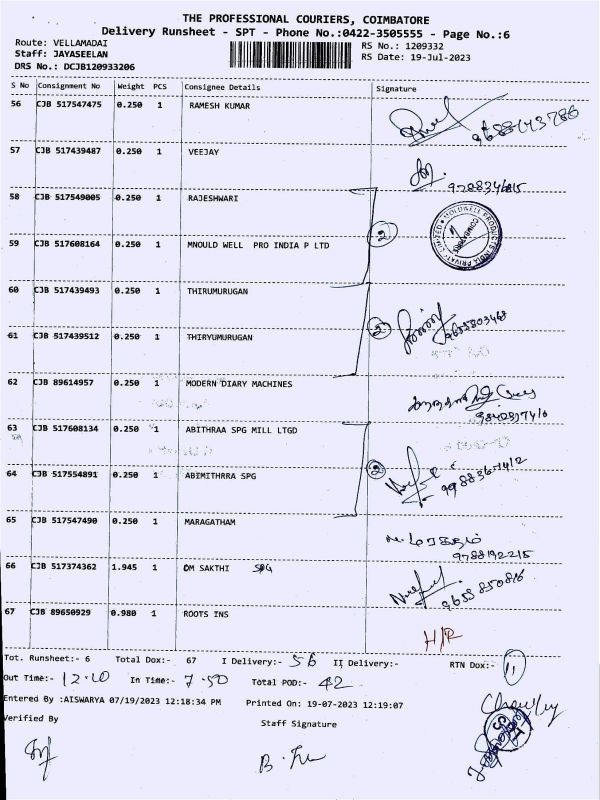 THE PROFESSIONAL COURIERS, COIMBATORE
Delivery Runsheet - SPT - Phone No.:0422-3505555 - Page No.:6
Route: VELLAMADAI RS No.: 1209332
Staff: JAYASEELAN RS Date: 19-Jul-2023
DRS No.: DCJB120933206
S No Consignment No Weight PCS Consignee Details Signature
56 CJB 517547475 0.250 1 RAMESH KUMAR
9688143786
57 CJB 517439487 0.250 1 VEEJAY
58 CJB 517549005 0.250 1 RAJESHWARI
2
MOLDWELL PRODUCTS INDIA PRIVATE LIMITED
59 CJB 517608164 0.250 1 MNOULD WELL PRO INDIA P LTD
60 CJB 517439493 0.250 1 THIRUMURUGAN
2
61 CJB 517439512 0.250 1 THIRYUMURUGAN
62 CJB 89614957 0.250 1 MODERN DIARY MACHINES
63 CJB 517608134 0.250 1 ABITHRAA SPG MILL LTGD
2
64 CJB 517554891 0.250 1 ABIMITHRRA SPG
65 CJB 517547490 0.250 1 MARAGATHAM
மரகதம்
9788192215
66 CJB 517374362 1.945 1 OM SAKTHI SPG
9655850816
67 CJB 89650929 0.980 1 ROOTS INS
H/R
Tot. Runsheet:- 6 Total Dox:- 67 I Delivery:- 56 II Delivery:- RTN Dox:- 11
Out Time:- 12.10 In Time:- 7.50 Total POD:- 42
Entered By :AISWARYA 07/19/2023 12:18:34 PM Printed On: 19-07-2023 12:19:07
Verified By Staff Signature